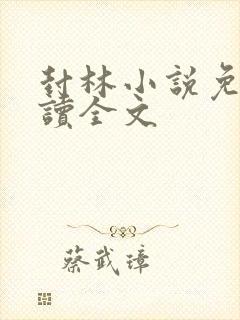 封林小説免
讀全文
蔡武璋